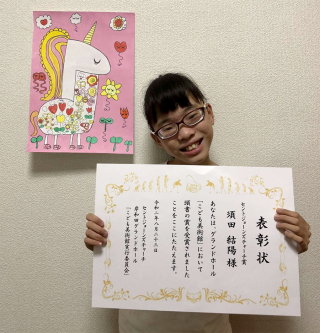 表彰状
セントジョーンズチャーチ賞
須田 結陽 様
あなたは、グランドホール
「こども美術館」において
頭書の賞を受賞されました
ことをここにたたえます。
令和二年八月二十三日
セントジョーンズチャーチ
岸和田グランドホール
「こども美術館実行委員会」